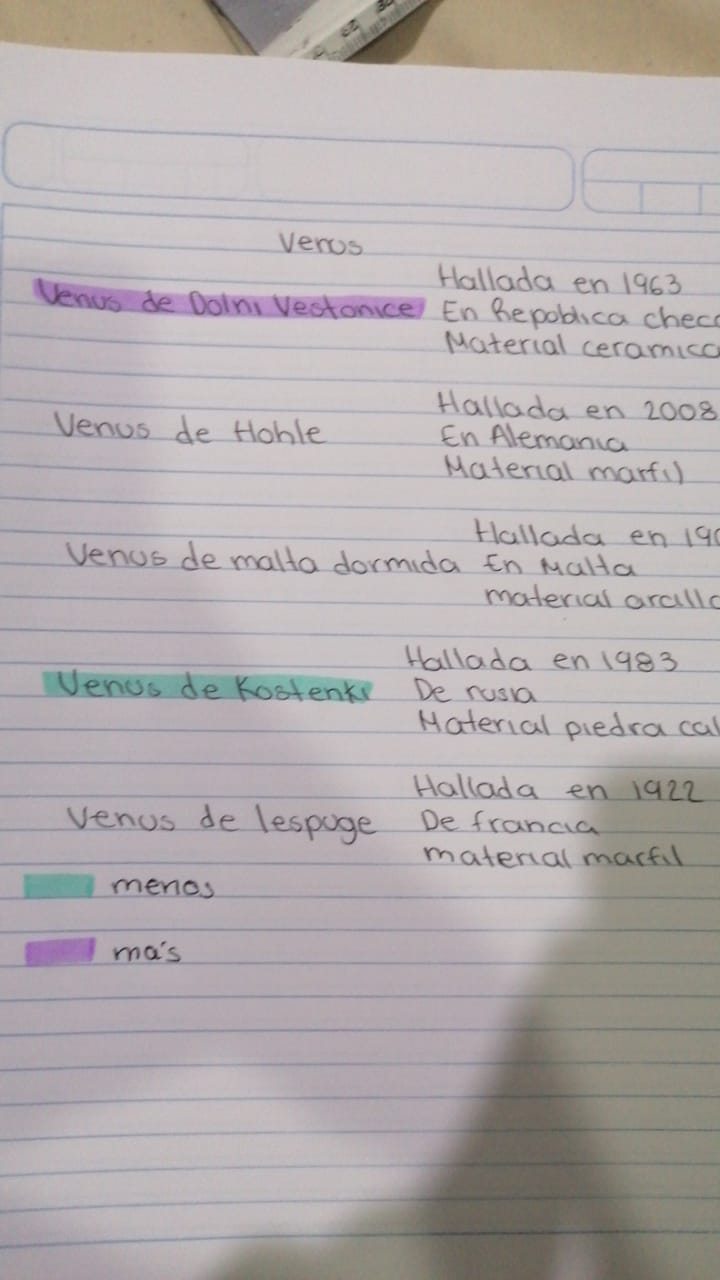 Venus
Hallada en 1963
Venus de Dolni Vestonice En Republica chec
Material ceramica
Hallada en 2008
Venus de Hohle En Alemania
Material marfil
Hallada en 190
Venus de malta dormida En Malta
material arcillo
Hallada en 1983
Venus de Kostenki De rusia
Material piedra cal
Hallada en 1922
Venus de lespuge De francia
material marfil
menos
más